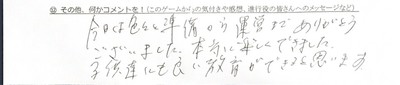 ◎ その他、何かコメントを！（このゲームさいの気付きや感想、進行役の皆さんへのメッセージなど）
今日は色々と準備から運営までありがとう
ございました。本当に楽しくできました。
子供達にも良い教育ができると思います